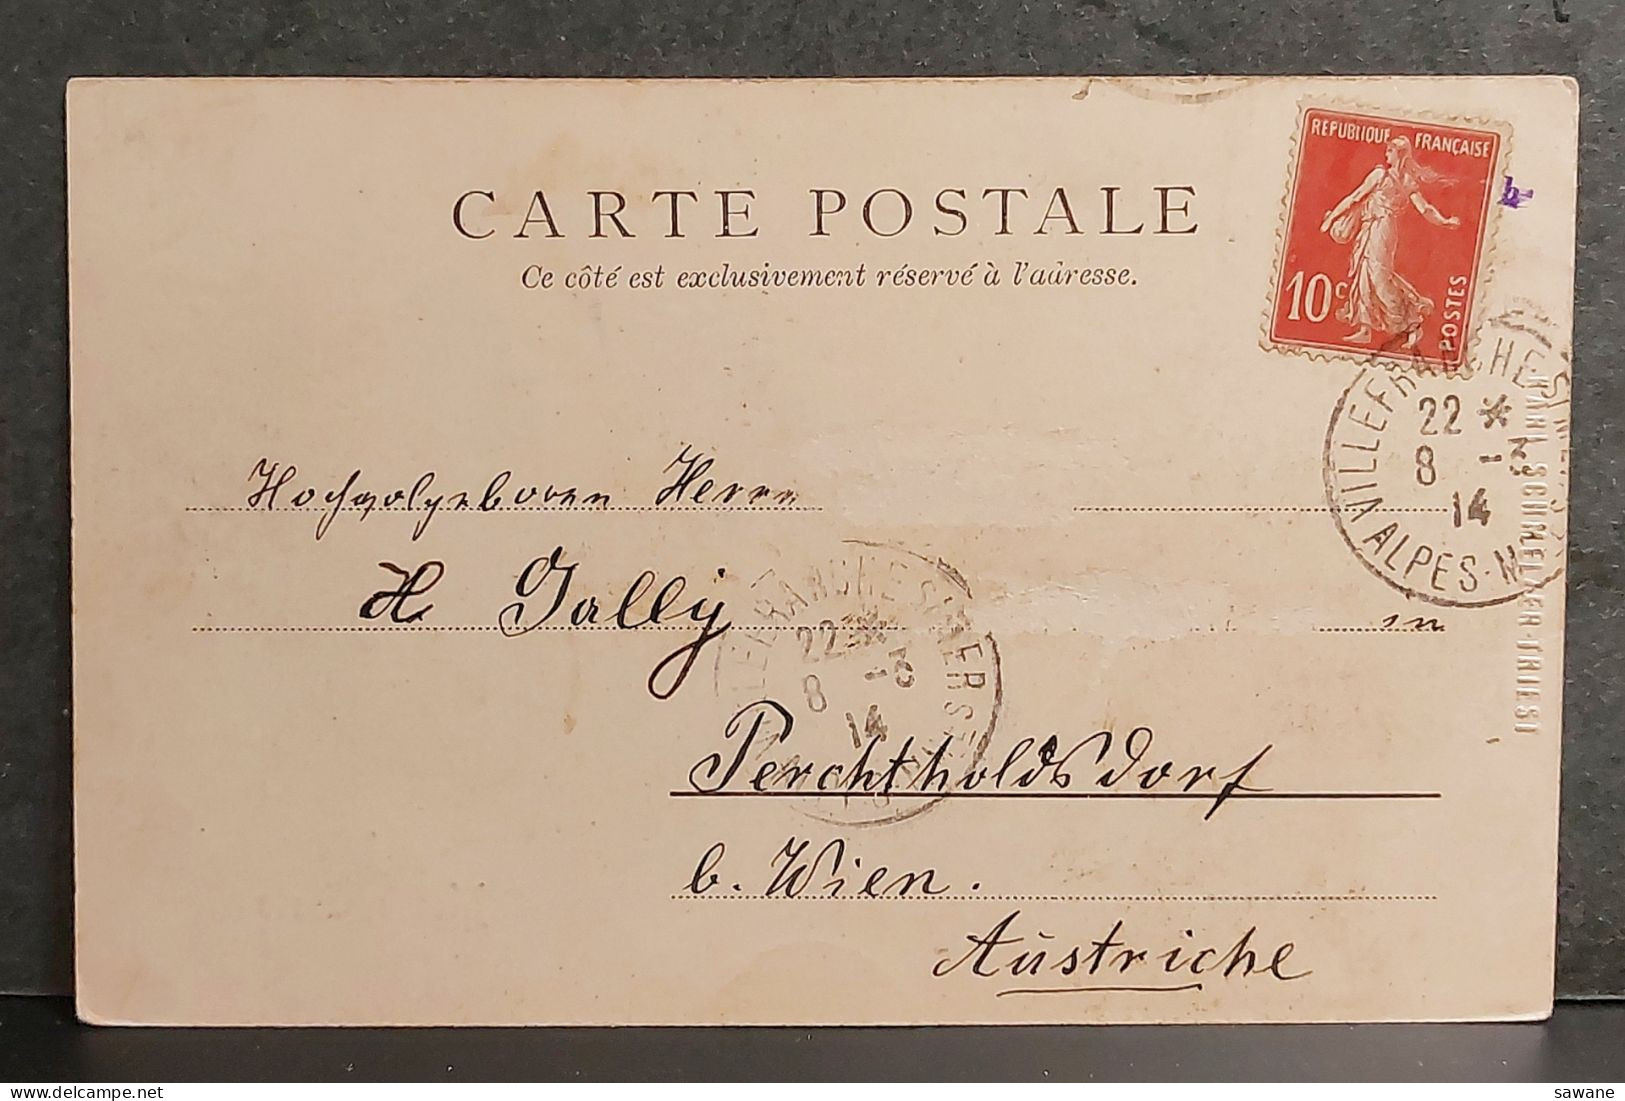 CARTE POSTALE
Ce côté est exclusivement réservé à l'adresse.
REPUBLIQUE FRANÇAISE
10c
POSTES
VILLEFRANCHE S/MER
22 *
8 - 3
14
ALPES-M
KARL SCHMELZER-TRIEST
Hochwolgeboren Herrn
H Gally
in
VILLEFRANCHE S/MER
22 *
8 - 3
14
Perchtholdsdorf
b. Wien.
Austriche
sawane